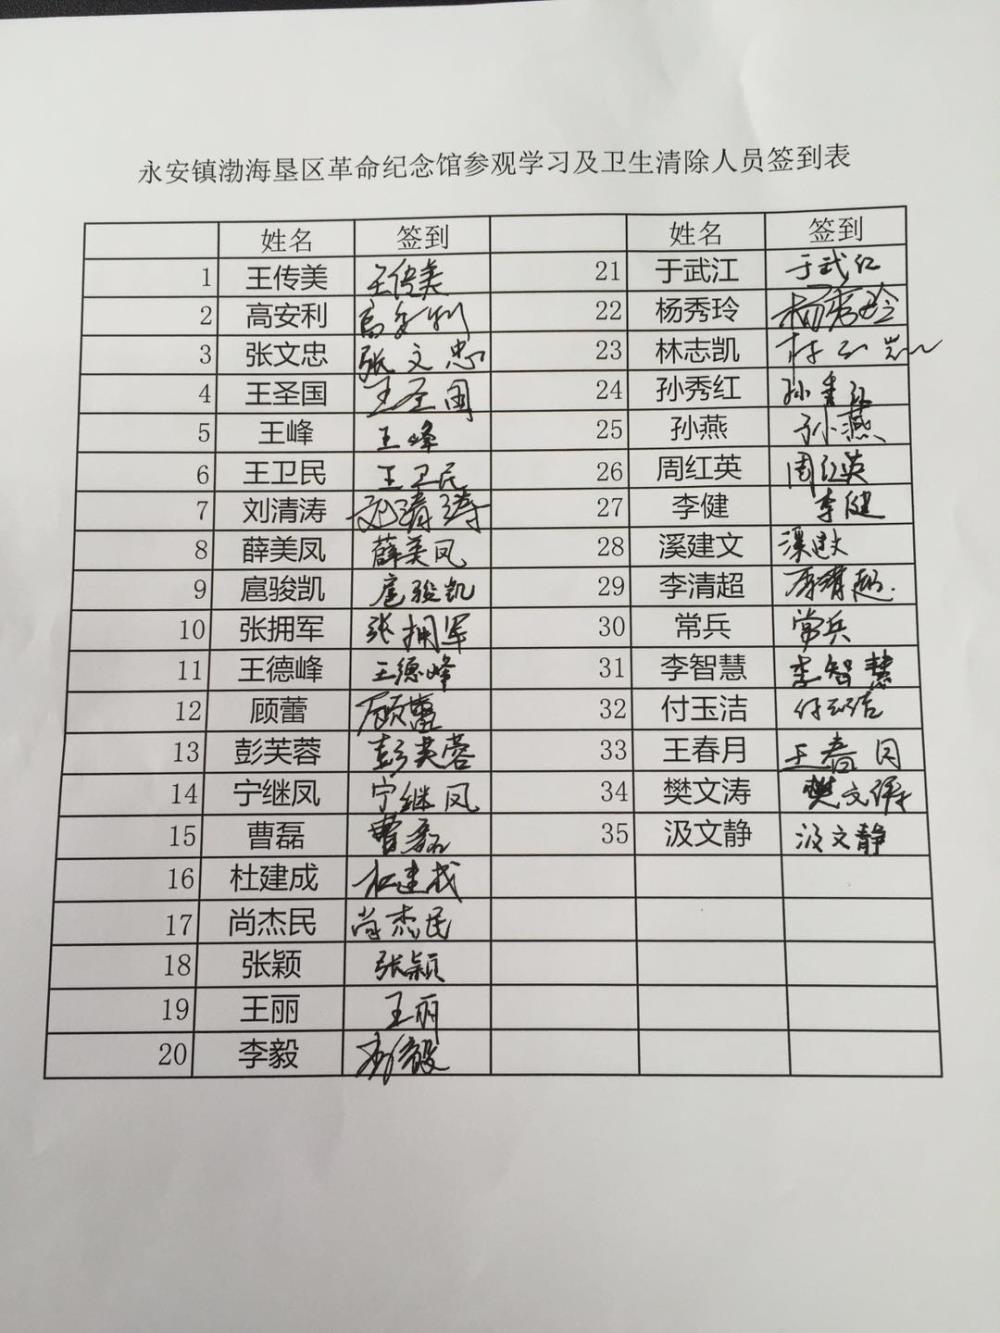 永安镇渤海垦区革命纪念馆参观学习及卫生清除人员签到表
姓名 签到 姓名 签到
1 王传美 王传美 21 于武江 于武江
2 高安利 高安利 22 杨秀玲 杨秀玲
3 张文忠 张文忠 23 林志凯 林志凯
4 王圣国 王圣国 24 孙秀红 孙秀红
5 王峰 王峰 25 孙燕 孙燕
6 王卫民 王卫民 26 周红英 周红英
7 刘清涛 刘清涛 27 李健 李健
8 薛美凤 薛美凤 28 溪建文 溪建文
9 扈骏凯 扈骏凯 29 李清超 李清超
10 张拥军 张拥军 30 常兵 常兵
11 王德峰 王德峰 31 李智慧 李智慧
12 顾蕾 顾蕾 32 付玉洁 付玉洁
13 彭芙蓉 彭芙蓉 33 王春月 王春月
14 宁继凤 宁继凤 34 樊文涛 樊文涛
15 曹磊 曹磊 35 汲文静 汲文静
16 杜建成 杜建成
17 尚杰民 尚杰民
18 张颖 张颖
19 王丽 王丽
20 李毅 李毅